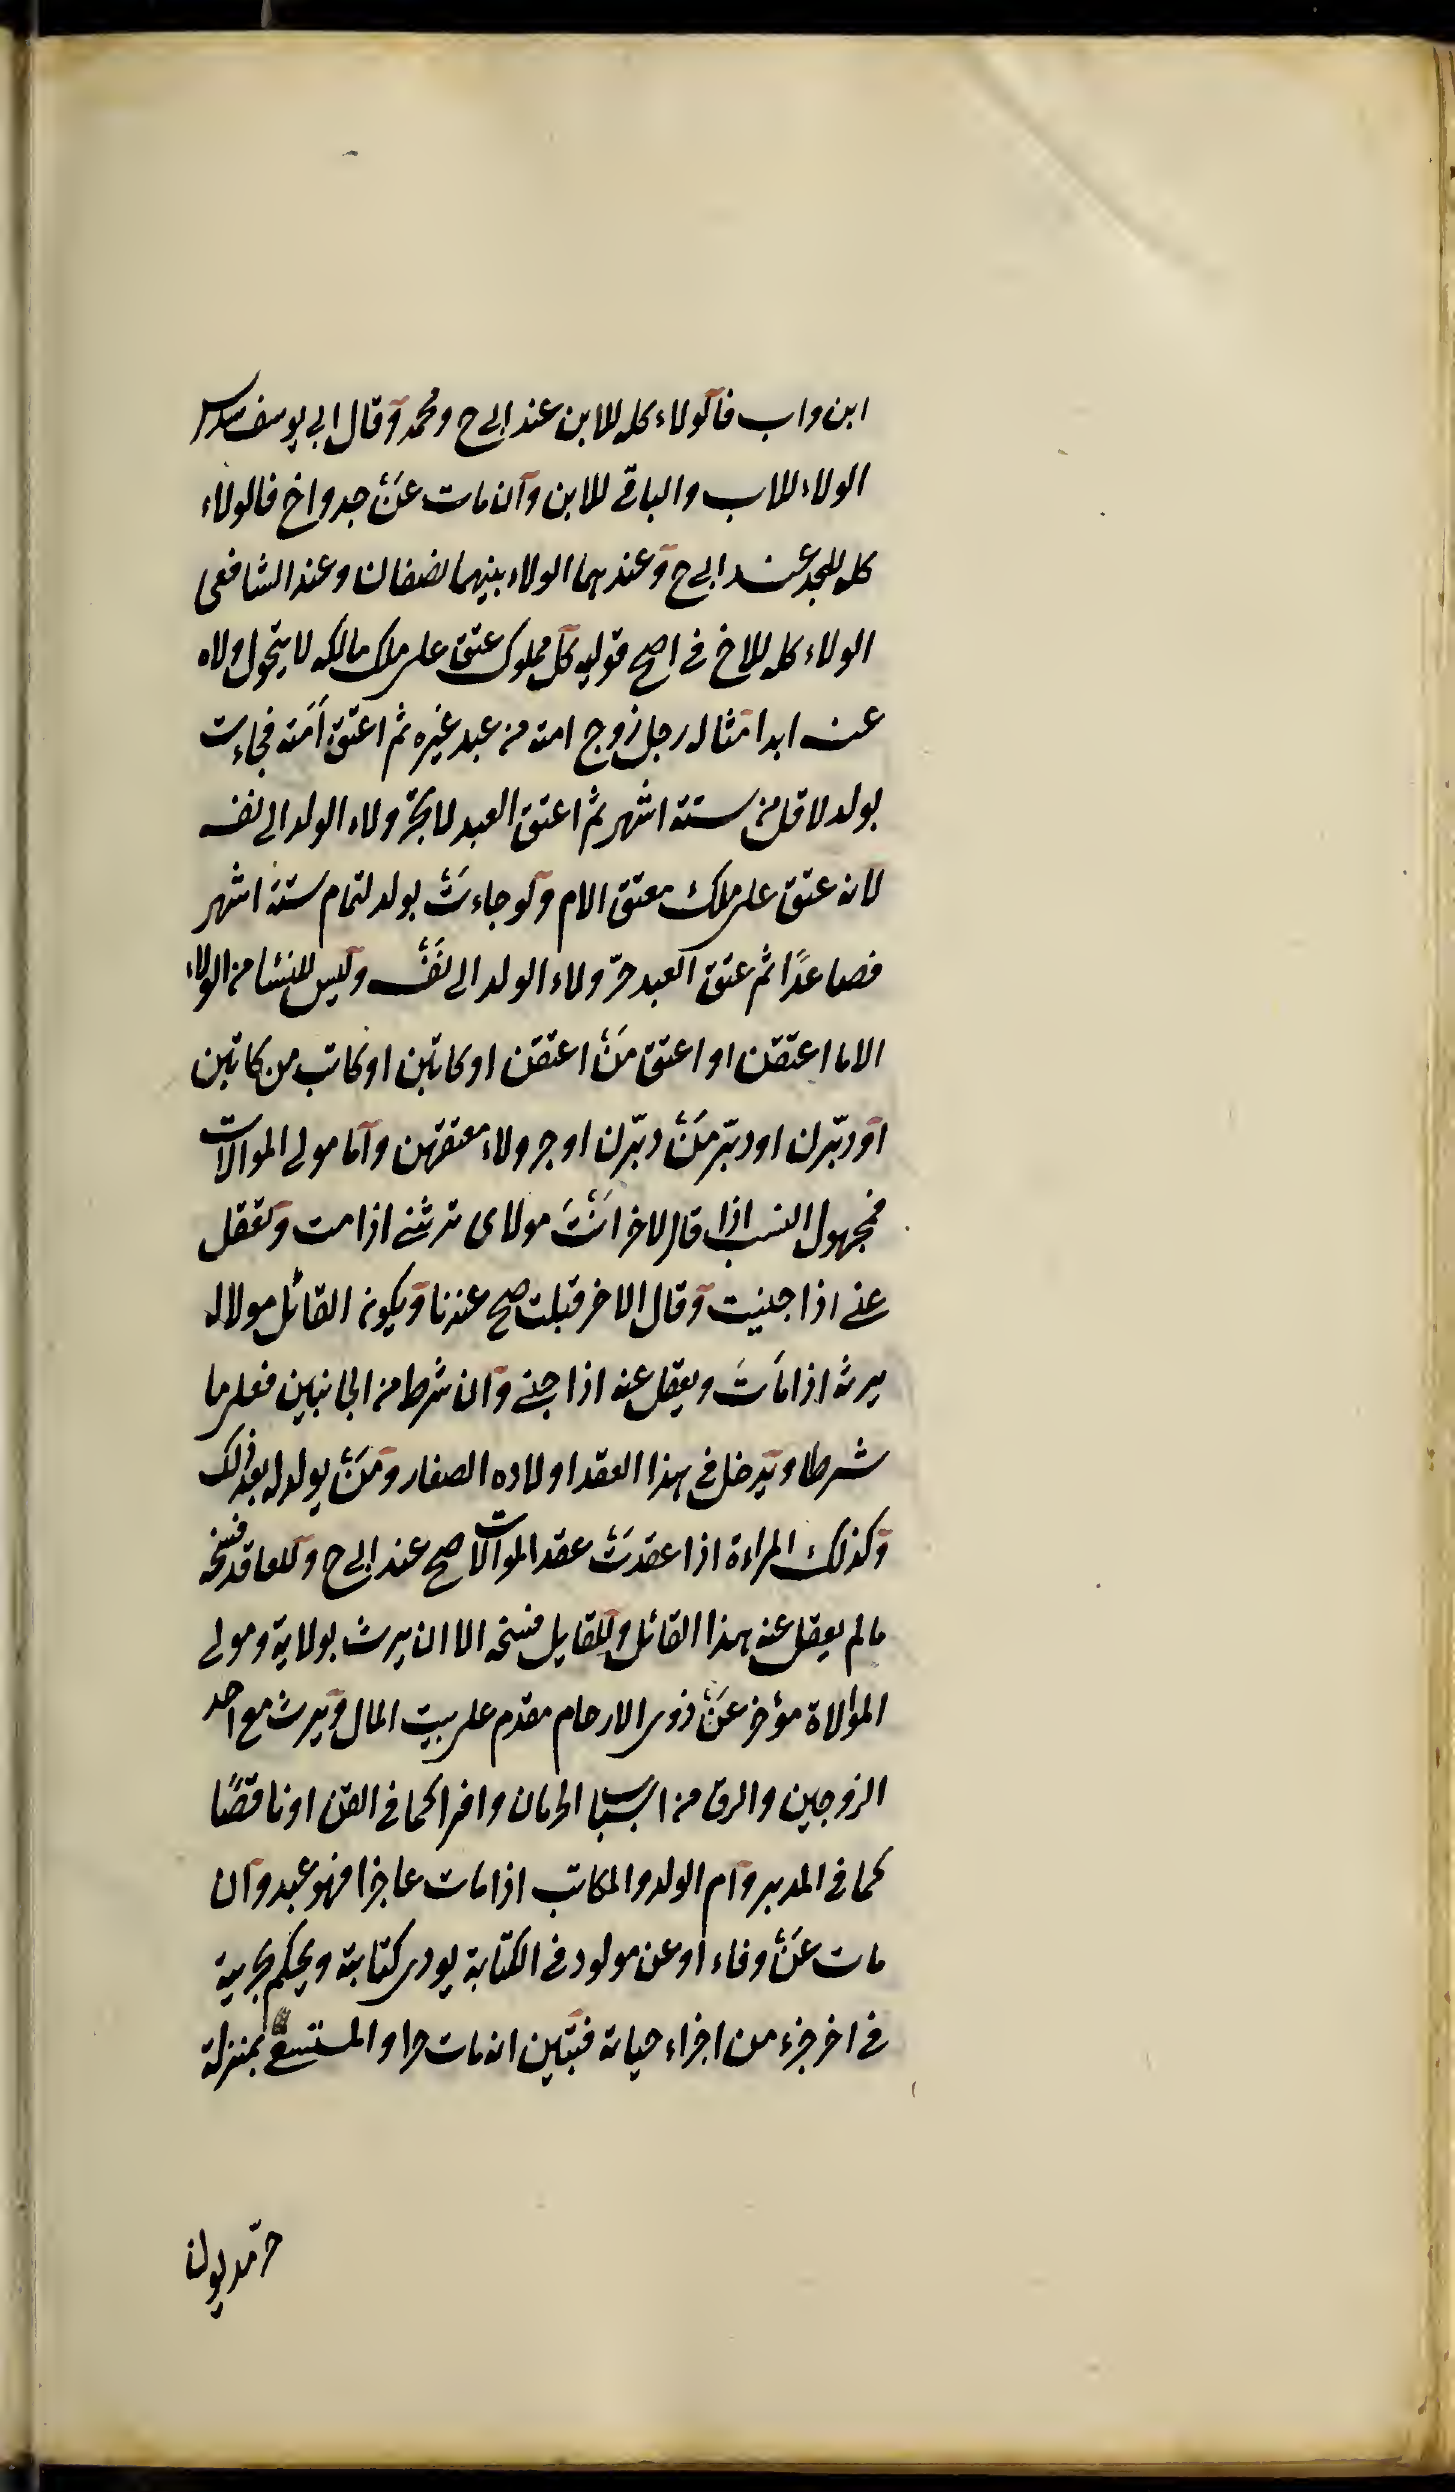 ابن واب فالولاء كله للابن عند ابی ح ومحمد وقال ابی یوسف سدس
الولاء للاب والباقی للابن وان مات عَنْ جد واخ فالولاء
كله للجد عند ابی ح وعندهما الولاء بینهما نصفان وعند الشافعی
الولاء كله للاخ فی اصح قولیه كل مملوک عتق علی ملک مالكه لا یتحول ولاه
عنه ابدا مثاله رجل زوج امته من عبد غیره ثم اعتق اَمَته فجاءت
بولد لاقل من ستة اشهر ثم اعتق العبد لا یجرّ ولاء الولد الی نفسه
لانه عتق علی ملک معتق الام ولو جاءتْ بولد لتمام ستة اشهر
فصاعدًا ثم عتق العبد جرّ ولاء الولد الی نَفْسه ولیس للنسا من الولاء
الا ما اعتقن او اعتق مَنْ اعتقن او كاتبن او كاتب من كاتبن
او دبّرن او دبّر مَنْ دبّرن او جر ولاء معتقهن واما مولی الموالات
فمجهول النسب اذا قال لاخر اَنْتَ مولای ترثنی اذا مت وتعقل
عنی اذا جنیت وقال الاخر قبلت صح عندنا ویكون القائل مولا له
یرثه اذا مَاتَ ویعقل عنه اذا جنی وان شرط من الجانبین فعلی ما
شرطا ویدخل فی هذا العقد اولاده الصغار ومَنْ یولد له بعد ذلک
وكذلک المراءة اذا عقدَتْ عقد الموالات صح عند ابی ح وللعاقد فسخه
مالم یعقل عنه هذا القائل وللقایل فسخه الا ان یرث بولایة ومولی
الموالاة مؤخر عَنْ ذوی الارحام مقدم علی بیت المال ویرث مع احد
الزوجین والرق من اسباب الحرمان وافرا كما فی القن او ناقصًا
كما فی المدبر وام الولد والمكاتب اذا مات عاجزا فهو عبد وان
مات عَنْ وفاء او عن مولود فی الكتابة یودی كتابته ویحكم بحریته
فی اخر جزء من اجزاء حیاته فتبین انه مات حرا والمستسعی بمنزلة
حرّ مدیون